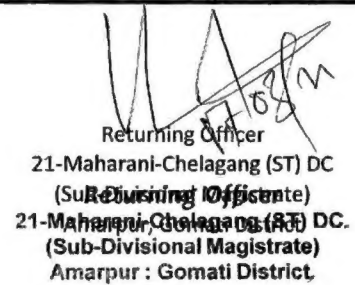 Returning Officer
21-Maharani-Chelagang (ST) DC
(Sub-Divisional Magistrate)
Amarpur, Gomati District
Returning Officer
21-Maharani-Chelagang (ST) DC.
(Sub-Divisional Magistrate)
Amarpur : Gomati District